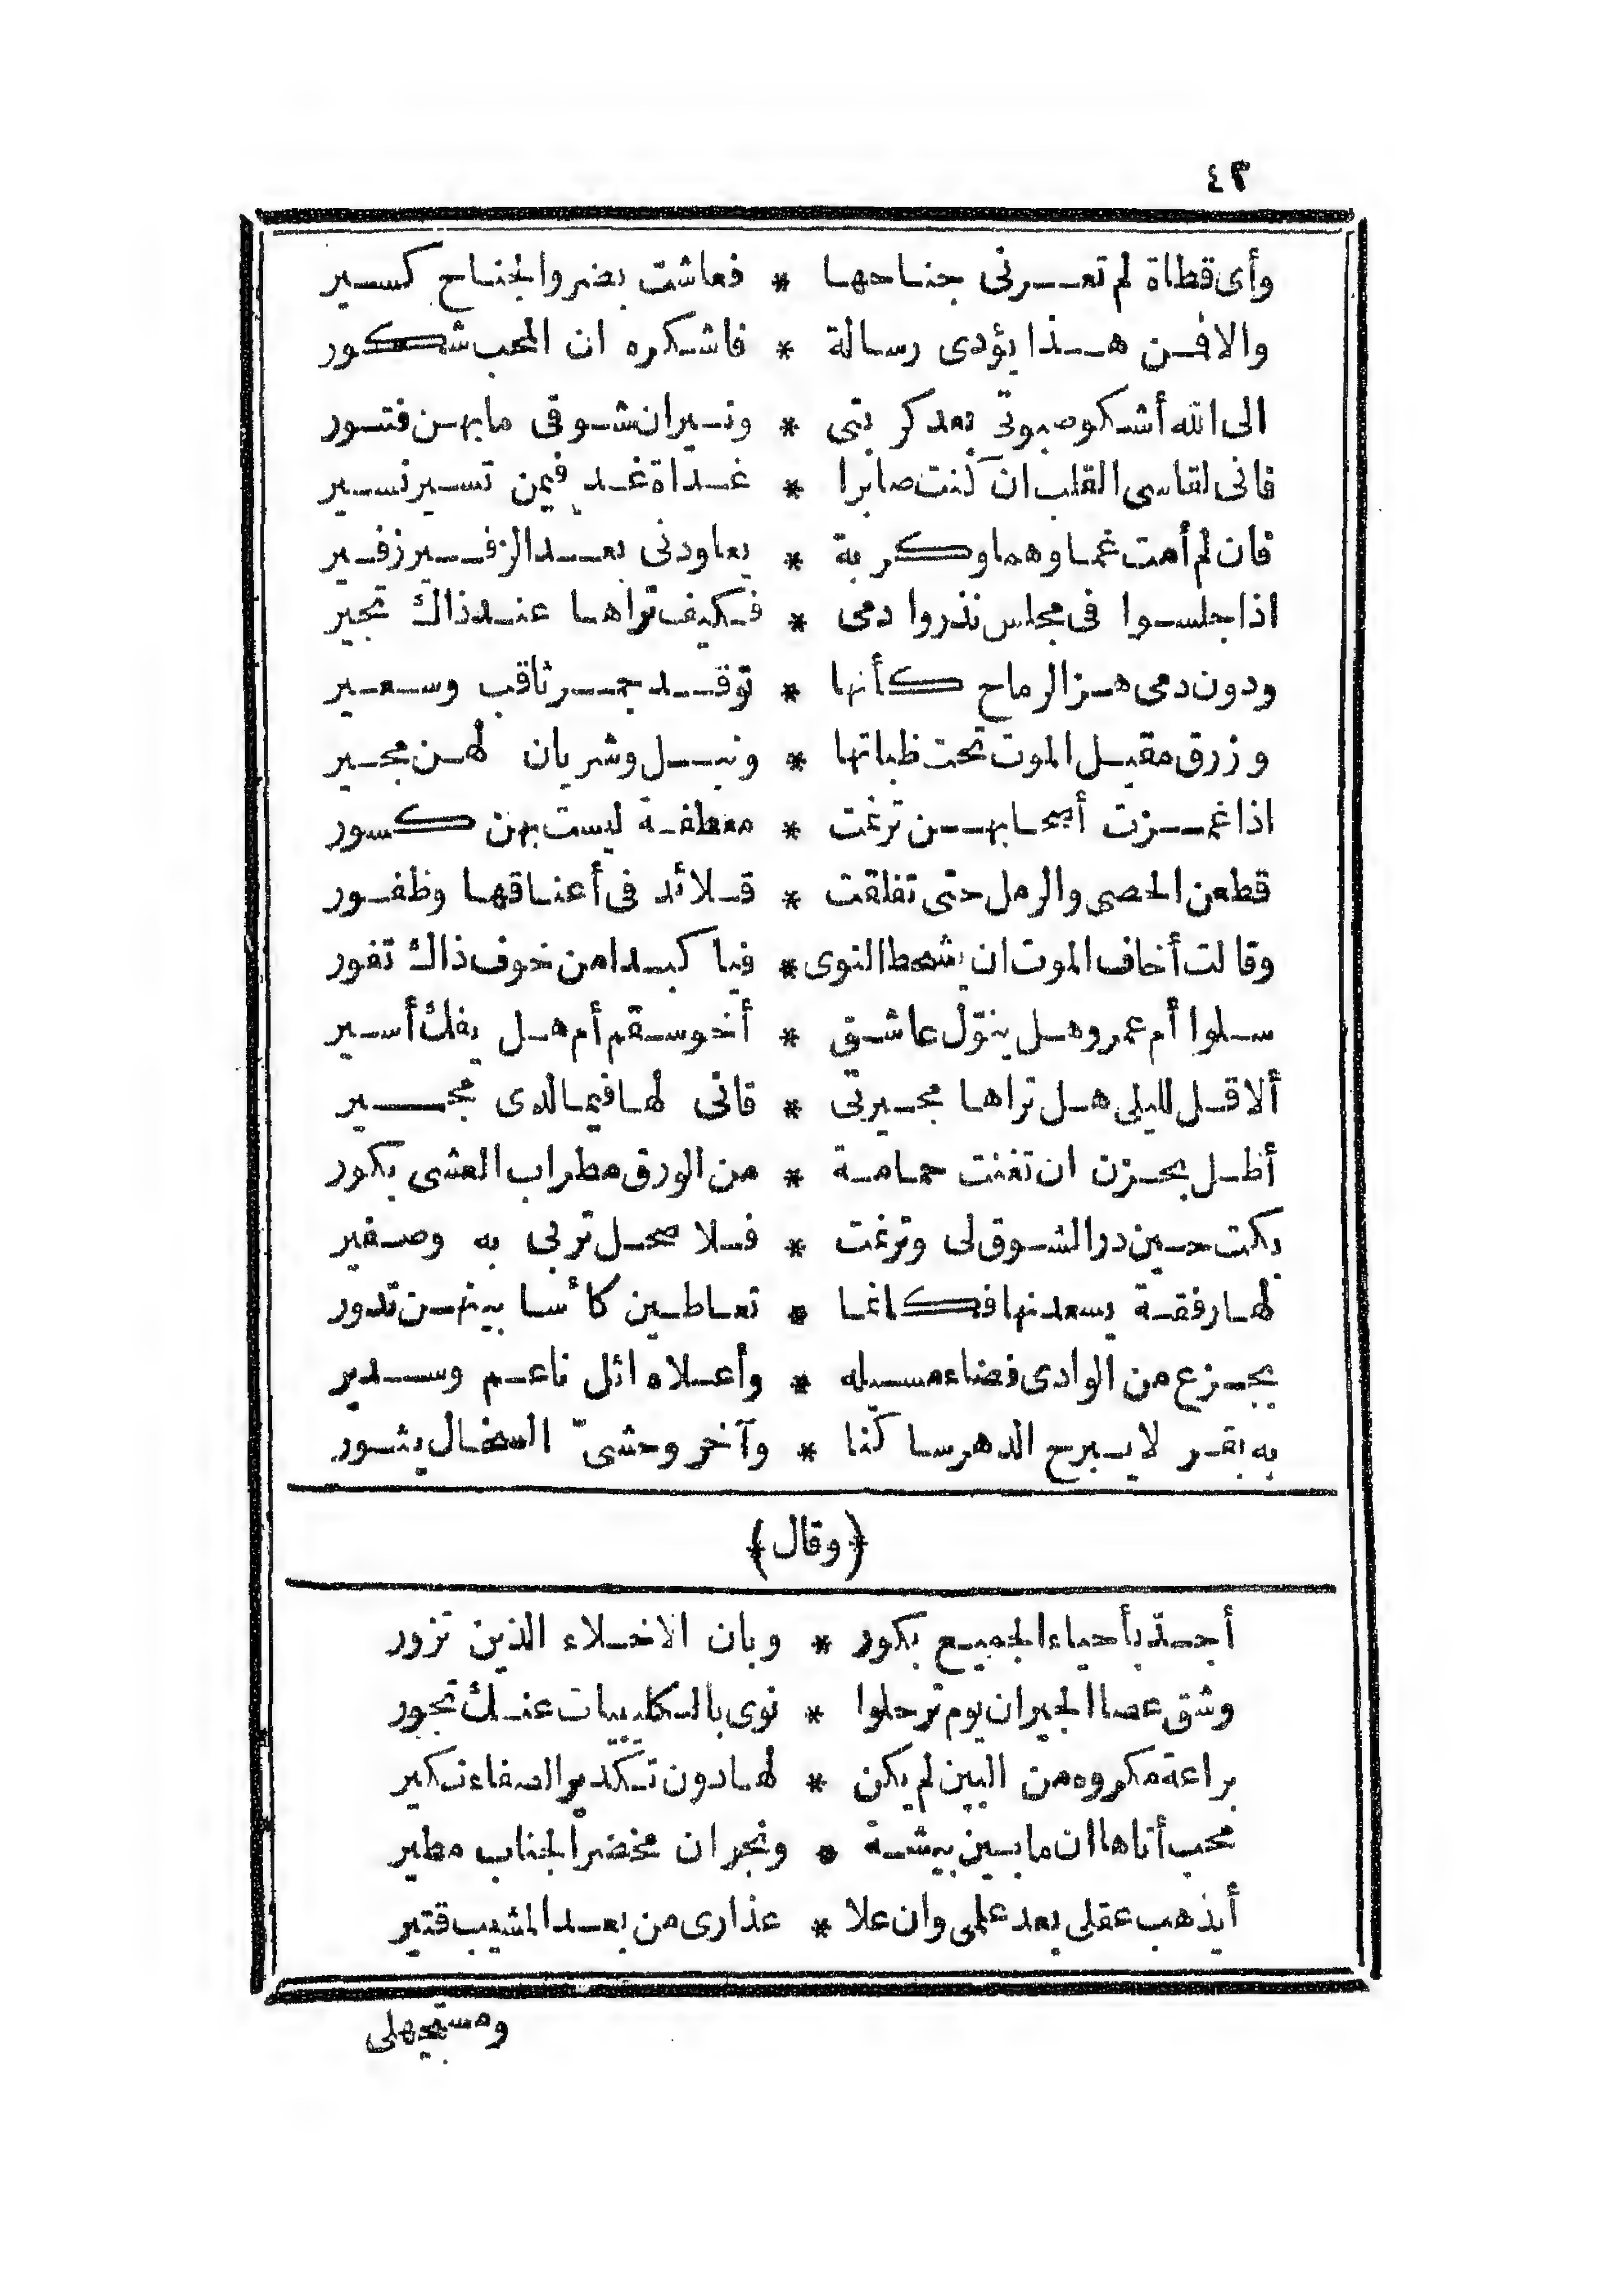 ٤٢
وأى قطاة لم تعرنى جناحها * فعاشت بضر والجناح كسير
والا فمن هذا يؤدى رسالة * فاشكره ان المحب شكور
الى الله أشكو صبوتى بعد كربتى * ونيران شوقى ما بهن فتور
فانى لقاسى القلب ان كنت صابرا * غداة غد فيمن تسير تسير
فان لم أمت غما وهما وكربة * يعاودنى بعد الزفير زفير
اذا جلسوا فى مجلس نذروا دمى * فكيف تراها عند ذاك تجير
ودون دمى هز الرماح كأنها * توقد جمر ثاقب وسعير
وزرق مقيل الموت تحت ظباتها * ونبل وشريان لهن مجير
اذا غمزت أصحابهن ترنمت * معطفة ليست بهن كسور
قطعن الحصى والرمل حتى تفلقت * قلائد فى أعناقها وظفور
وقالت أخاف الموت ان يشحط النوى * فيا كبدا من خوف ذاك تفور
سلوا أم عمرو هل ينوّل عاشق * أخو سقم أم هل يفك أسير
ألا قل لليلى هل تراها مجيرتى * فانى لها فيما لدى مجير
أظل بحزن ان تغنت حمامة * من الورق مطراب العشى بكور
بكت حين در الشوق لى وترنمت * فلا صحل تربى به وصفير
لها رفقة يسعدنها فكأنما * تعاطين كأسا بينهن تدور
بجزع من الوادى فضاء مسيله * وأعلاه اثل ناعم وسدير
به بقر لا يبرح الدهر ساكنا * وآخر وحشىّ السخال يثور
﴿وقال﴾
أجدّ بأحياء الجميع بكور * وبان الاخلاء الذين تزور
وشق عصا الجيران يوم ترحلوا * نوى بالكليبيات عنك تجور
براعة مكروه من البين لم يكن * لها دون تكدير الصفاء نكير
محب أتاها ان ما بين بيشة * ونجران مخضر الجناب مطير
أيذهب عقلى بعد علمى وان علا * عذارى من بعد المشيب قتير
ومستجهلى